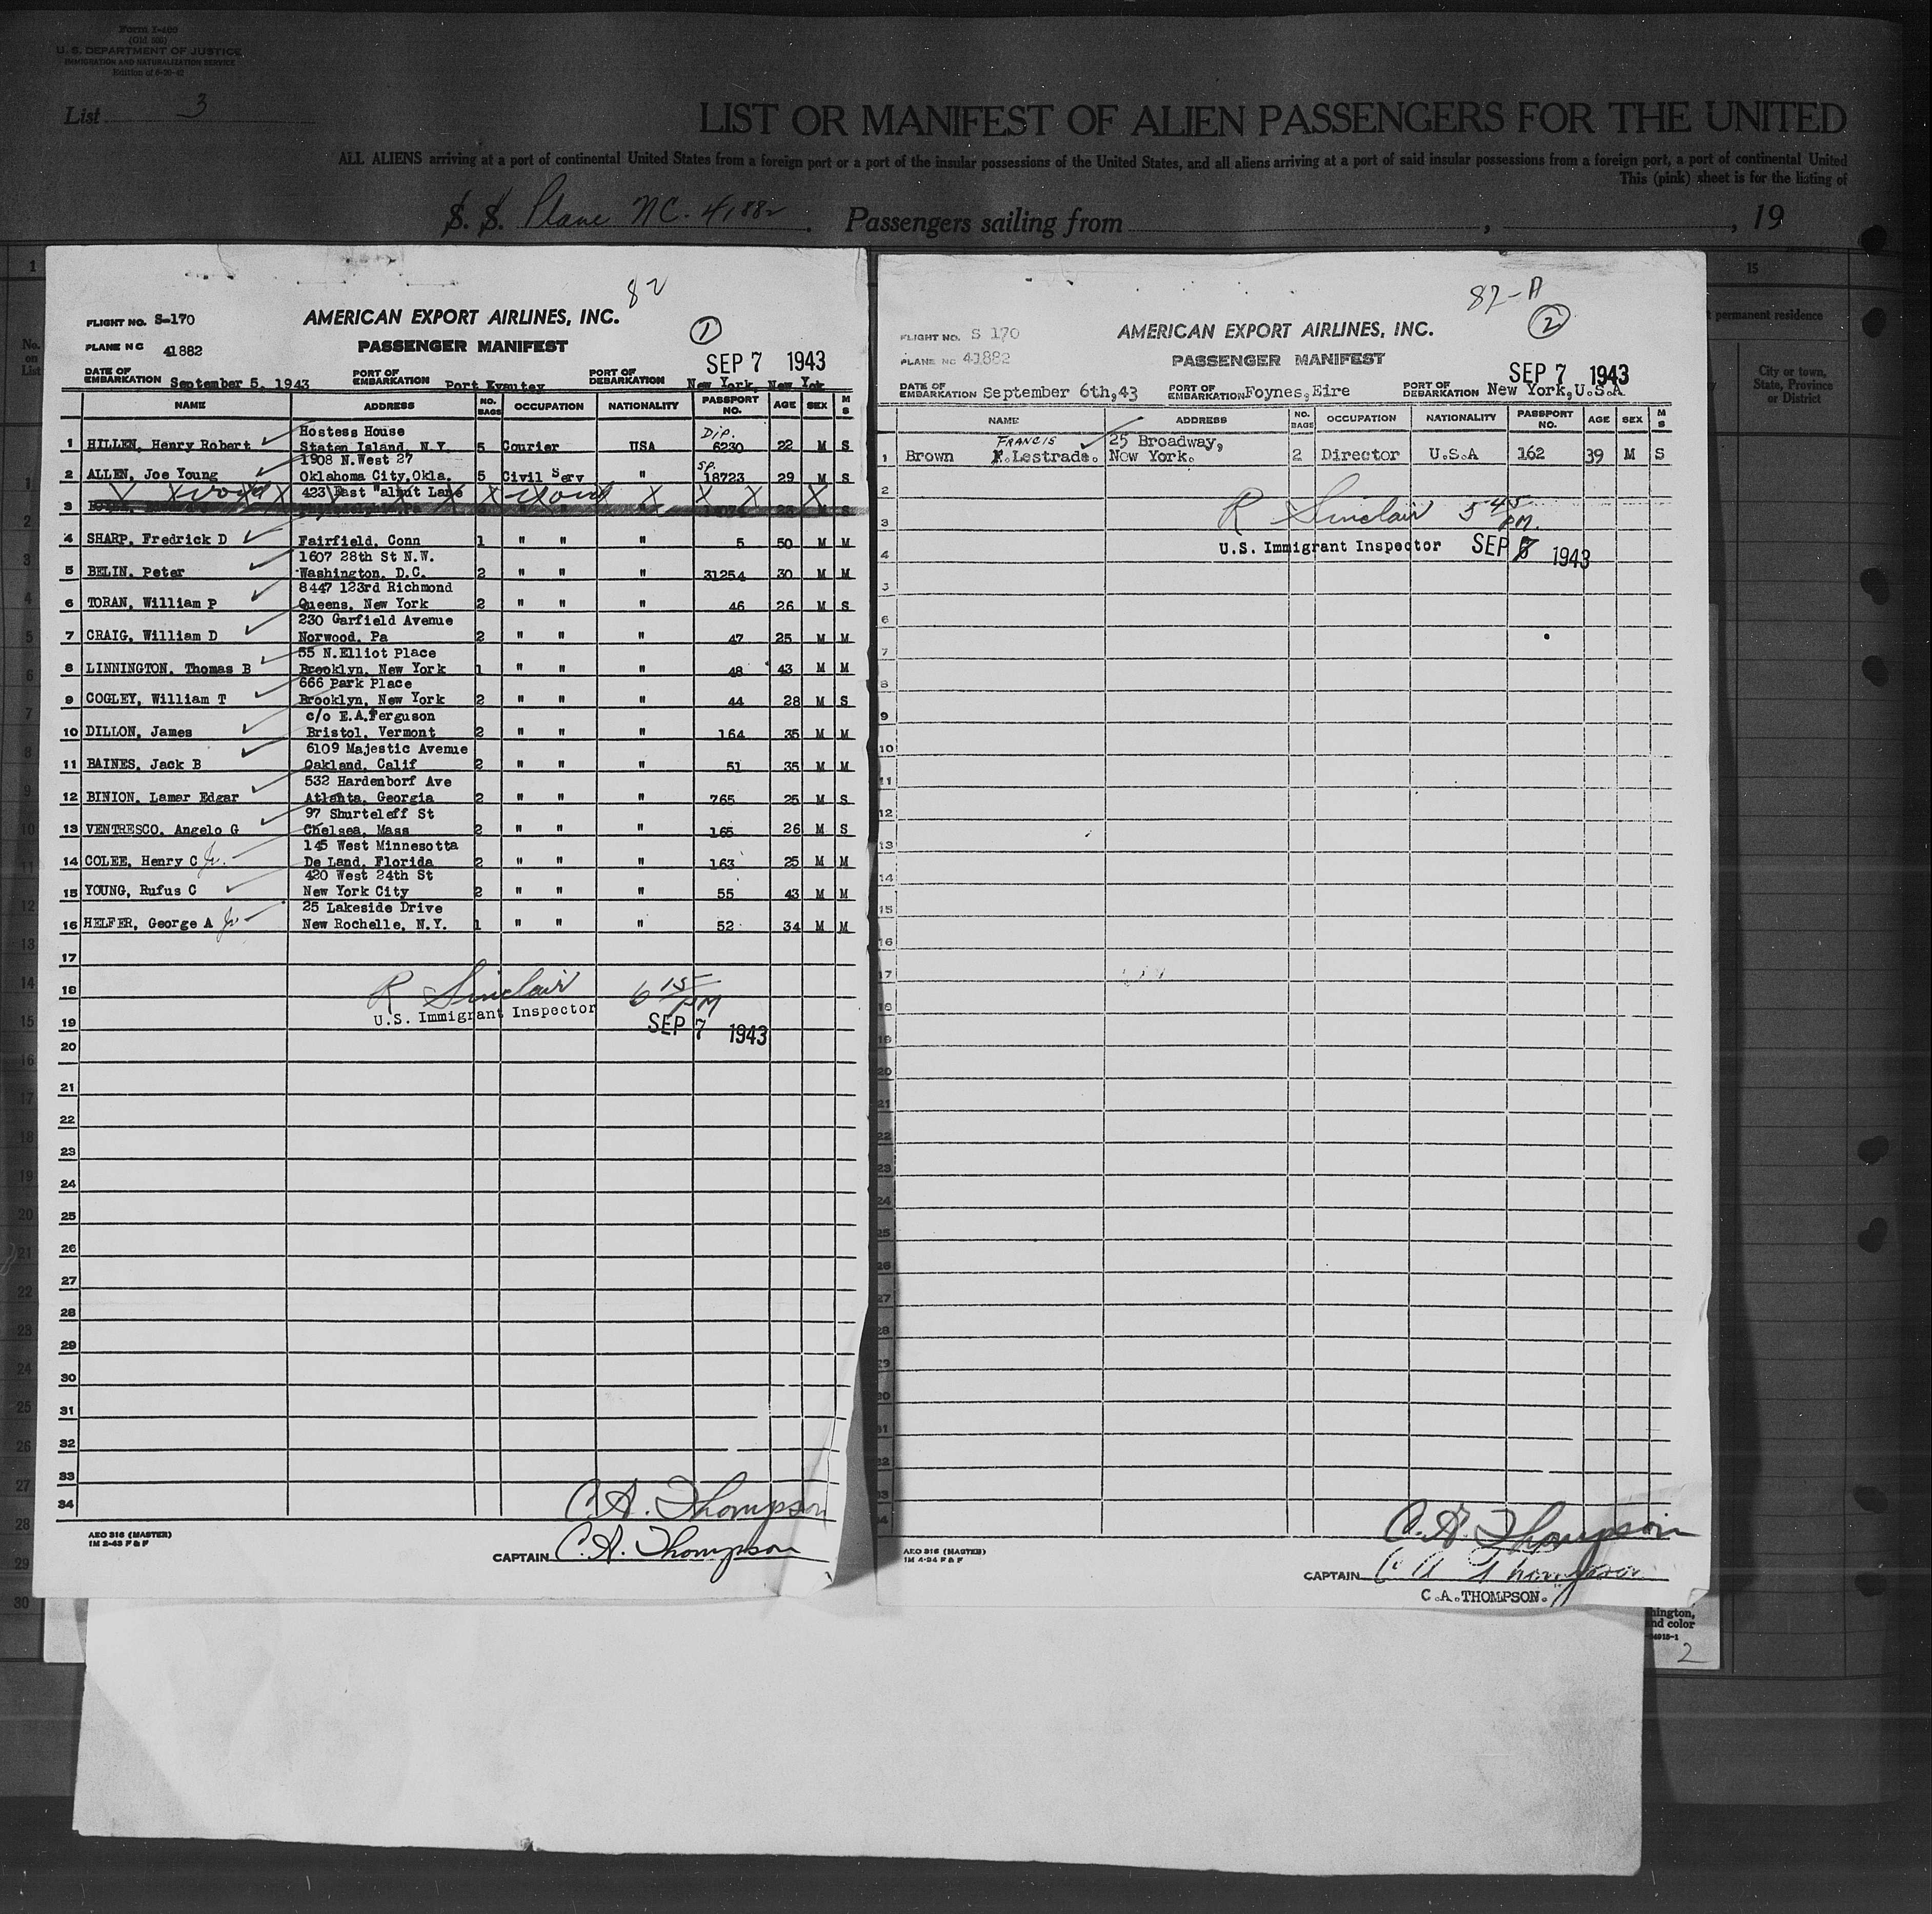 Form I-460
(Old 500)
U. S. DEPARTMENT OF JUSTICE
IMMIGRATION AND NATURALIZATION SERVICE
List 3
LIST OR MANIFEST OF ALIEN PASSENGERS FOR THE UNITED
ALL ALIENS arriving at a port of continental United States from a foreign port or a port of the insular possessions of the United States, and all aliens arriving at a port of said insular possessions from a foreign port, a port of continental United
This (pink) sheet is for the listing of
S. S. Plane NC. 41882. Passengers sailing from , , 19
82
FLIGHT NO. S-170
AMERICAN EXPORT AIRLINES, INC.
1
PLANE NC 41882
PASSENGER MANIFEST
SEP 7 1943
DATE OF EMBARKATION September 5, 1943 PORT OF EMBARKATION PORT OF DEBARKATION New York, New Yok
NAME ADDRESS NO. BAGS OCCUPATION NATIONALITY PASSPORT NO. AGE SEX M S
Hostess House Dip.
1 HILLEN, Henry Robert Staten Island, N.Y. 5 Courier USA 6230 22 M S
1908 N.West 27 Sp.
2 ALLEN, Joe Young Oklahoma City,Okla. 5 Civil Serv " 18723 29 M S
423 East Walnut Lane
3 Philadelphia,Pa S
4 SHARP, Fredrick D Fairfield, Conn 1 " " " 5 50 M M
1607 28th St N.W.
5 BELIN, Peter Washington, D.C. 2 " " " 31254 30 M M
8447 123rd Richmond
6 TORAN, William P Queens, New York 2 " " " 46 26 M S
230 Garfield Avenue
7 CRAIG, William D Norwood, Pa 2 " " " 47 25 M M
55 N.Elliot Place
8 LINNINGTON, Thomas B Brooklyn, New York 1 " " " 48 43 M M
666 Park Place
9 COGLEY, William T Brooklyn, New York 2 " " " 44 28 M S
c/o E.A.Ferguson
10 DILLON, James Bristol, Vermont 2 " " " 164 35 M M
6109 Majestic Avenue
11 BAINES, Jack B Oakland, Calif 2 " " " 51 35 M M
532 Hardenborf Ave
12 BINION, Lamar Edgar Atlanta, Georgia 2 " " " 765 25 M S
97 Shurteleff St
13 VENTRESCO, Angelo G Chelsea, Mass 2 " " " 165 26 M S
145 West Minnesotta
14 COLEE, Henry C Jr. De Land, Florida 2 " " " 163 25 M M
420 West 24th St
15 YOUNG, Rufus C New York City 2 " " " 55 43 M M
25 Lakeside Drive
16 HELFER, George A Jr. New Rochelle, N.Y. 1 " " " 52 34 M M
17
18
R Sinclair 6 15 PM
U.S. Immigrant Inspector
SEP 7 1943
19
20
21
22
23
24
25
26
27
28
29
30
31
32
33
34
C.A. Thompson
AEO 316 (MASTER)
1M 2-43 F & F
CAPTAIN C.A. Thompson
82-A
FLIGHT NO. S 170
AMERICAN EXPORT AIRLINES, INC.
2
PLANE NC 41882
PASSENGER MANIFEST
SEP 7 1943
DATE OF EMBARKATION September 6th,43 PORT OF EMBARKATION Foynes,Eire PORT OF DEBARKATION New York,U.S.A
NAME ADDRESS NO. BAGS OCCUPATION NATIONALITY PASSPORT NO. AGE SEX M S
FRANCIS 25 Broadway,
1 Brown F.Lestrade. New York. 2 Director U.S.A 162 39 M S
2
R Sinclair 5 45 PM.
3
U.S. Immigrant Inspector SEP 1943
4
6
7
8
9
10
11
12
13
14
15
16
17
18
19
20
21
22
23
24
25
26
27
28
29
C.A. Thompson
AEO 316 (MASTER)
CAPTAIN C A Thompson
C.A.THOMPSON.
15
permanent residence
City or town,
State, Province
or District
No.
on
List
hington,
nd color
2